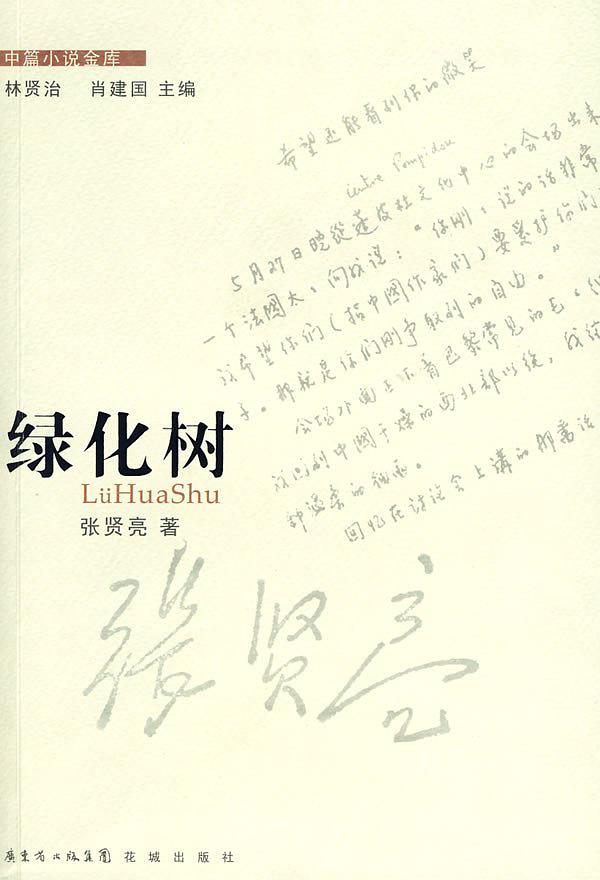 中篇小说金库
林贤治 肖建国 主编
希望还能看到你的微笑
Centre Pompidou
5月27日晚从蓬皮杜文化中心的会场出来
一个法国太、向我说：“你刚、说的话非常
我希望你们（指中国作家们）要爱护你们的
子。那就是你们刚争取到的自由。”
会场外面正下着巴黎常见的毛、
我回到中国干燥的西北部以后，我
的细雨。
回忆在讨论会上讲的那番话
绿化树
LüHuaShu
张贤亮 著
张贤亮
广东省出版集团 花城出版社